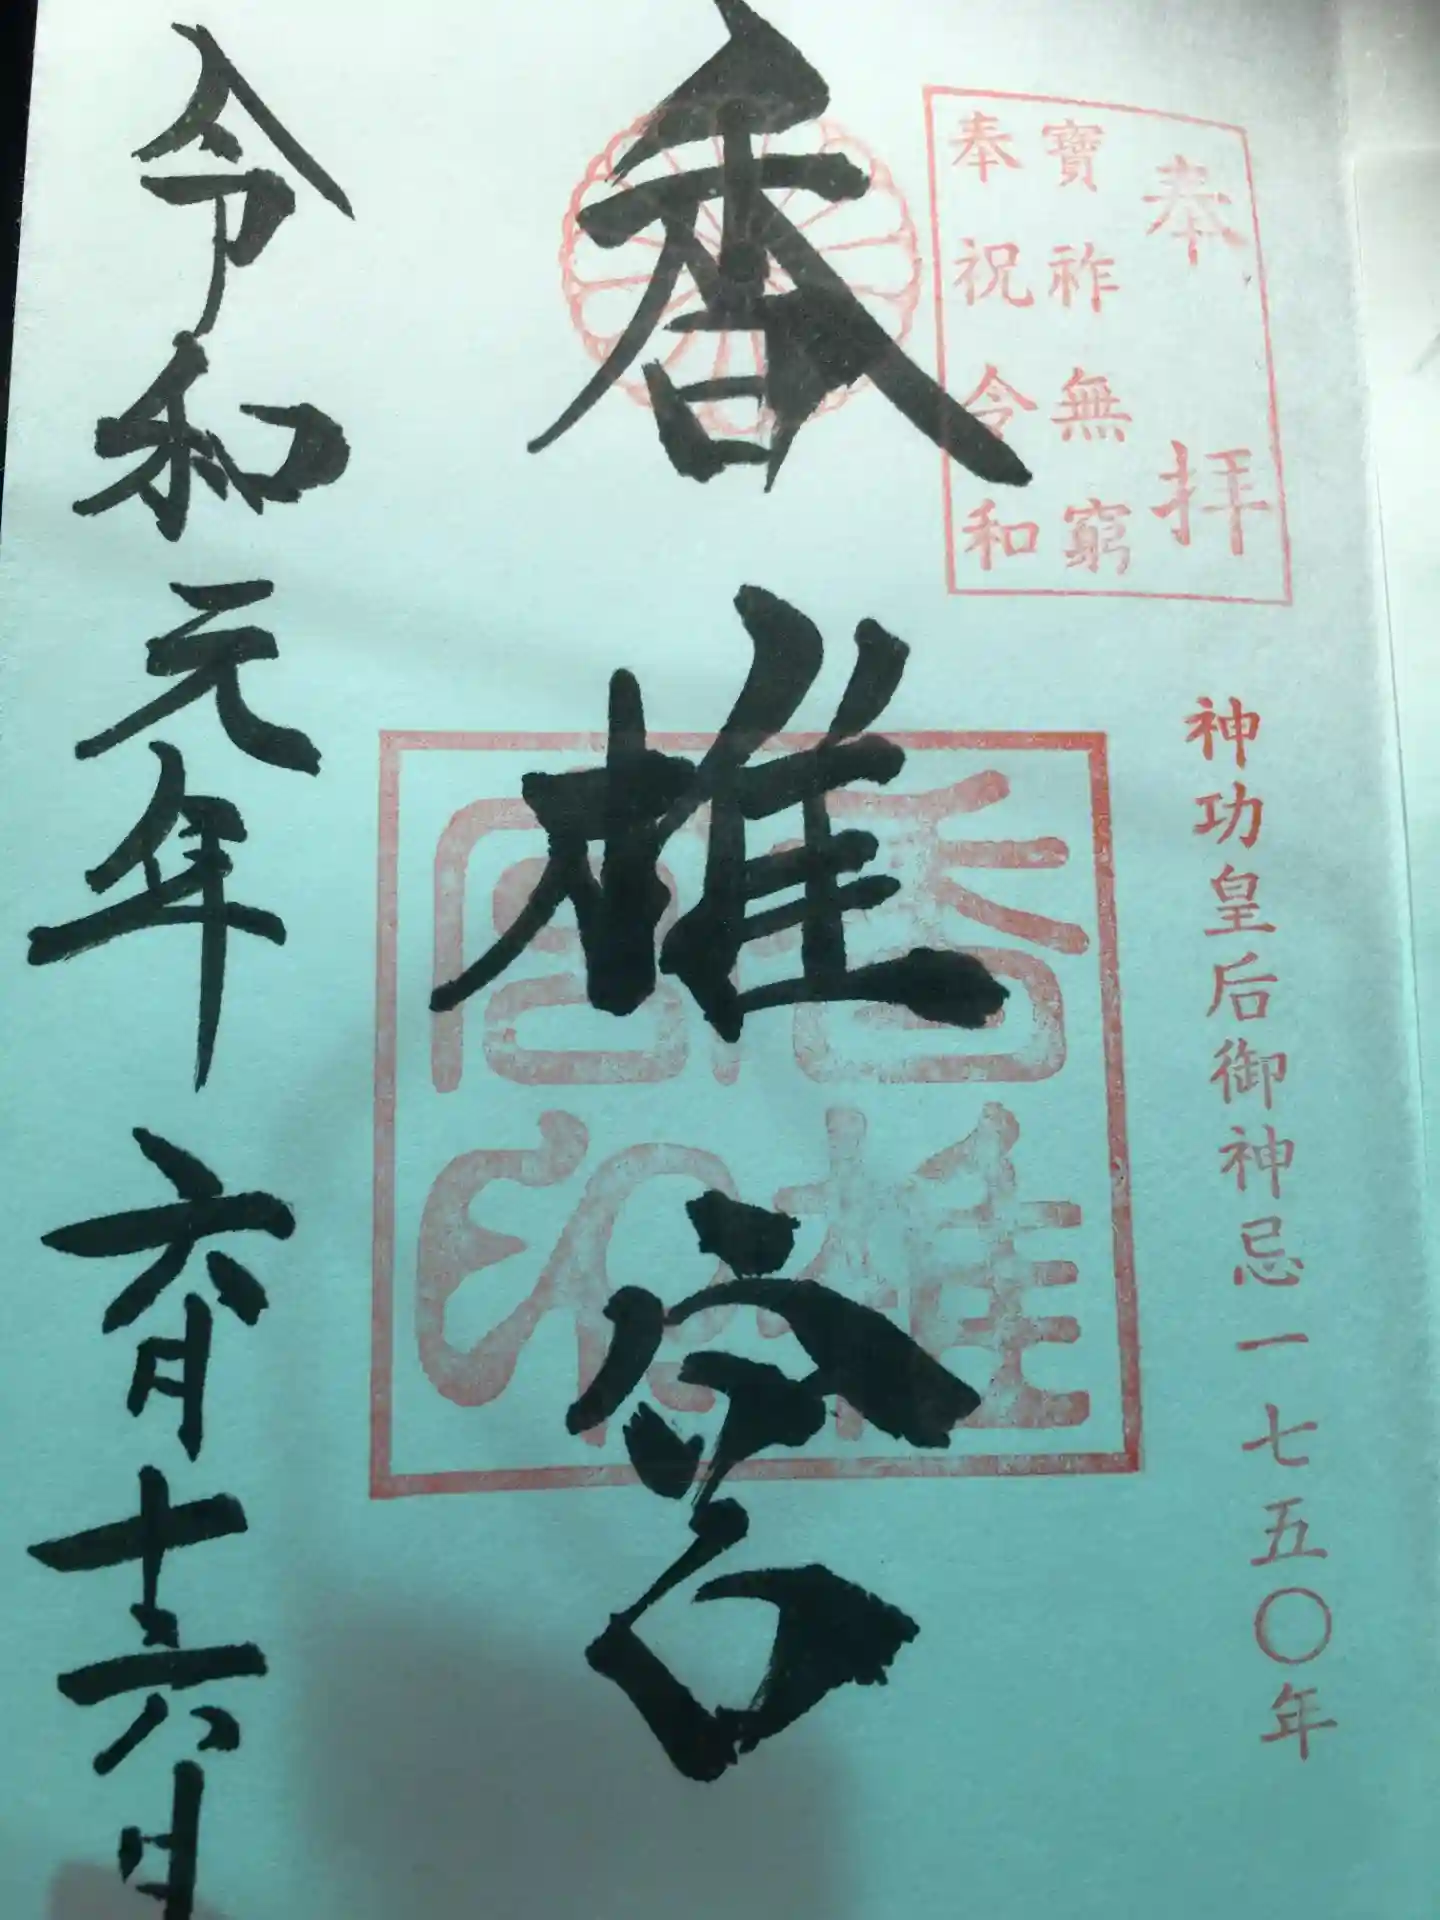 奉拝
寶祚無窮
奉祝令和
神功皇后御神忌一七五〇年
香椎宮
香椎
宮印
令和元年六月十六日